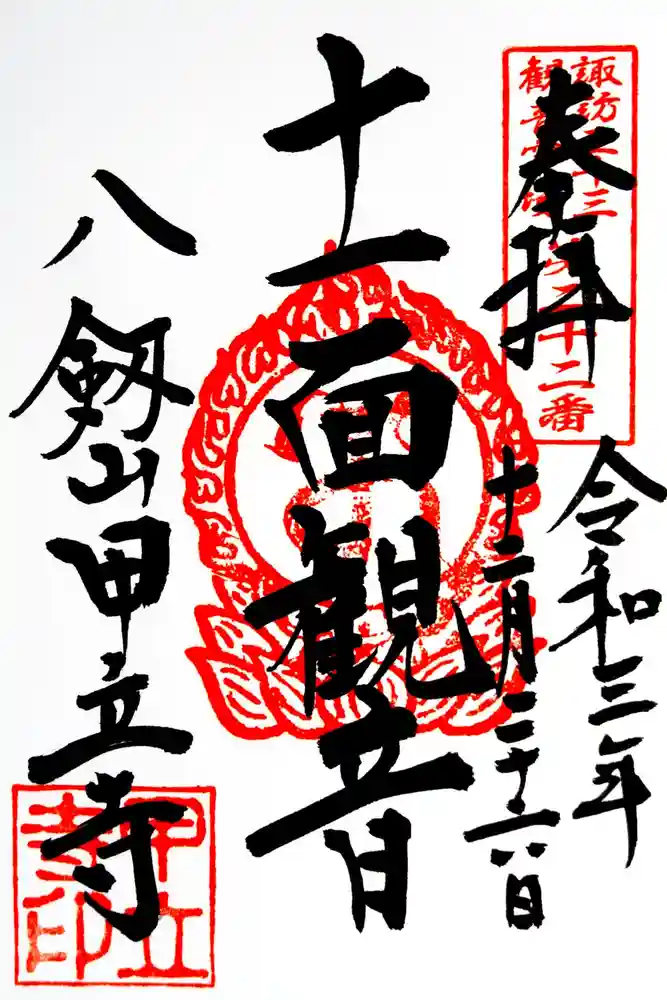 奉拝
諏訪三十三
観音霊場第二十二番
令和三年
十二月二十六日
十一面観音
八劔山甲立寺
甲立
寺印